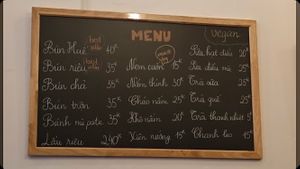 MENU
vegan
Bún Huế best seller 40k
Bún riêu best seller 35k
Bún chả 35k
Bún trộn 35k
Bánh mì pate 35k
Lẩu riêu 240k
Nem cuốn 15k
Nem thính 30k
Cháo nấm 25k
Khô nấm 20k
Xiên nướng 15k
Sữa hạt điều 20k
Sữa dừa
Trà sữa 25k
Trà quế 25k
Trà thanh nhiệt
Chanh leo 15k